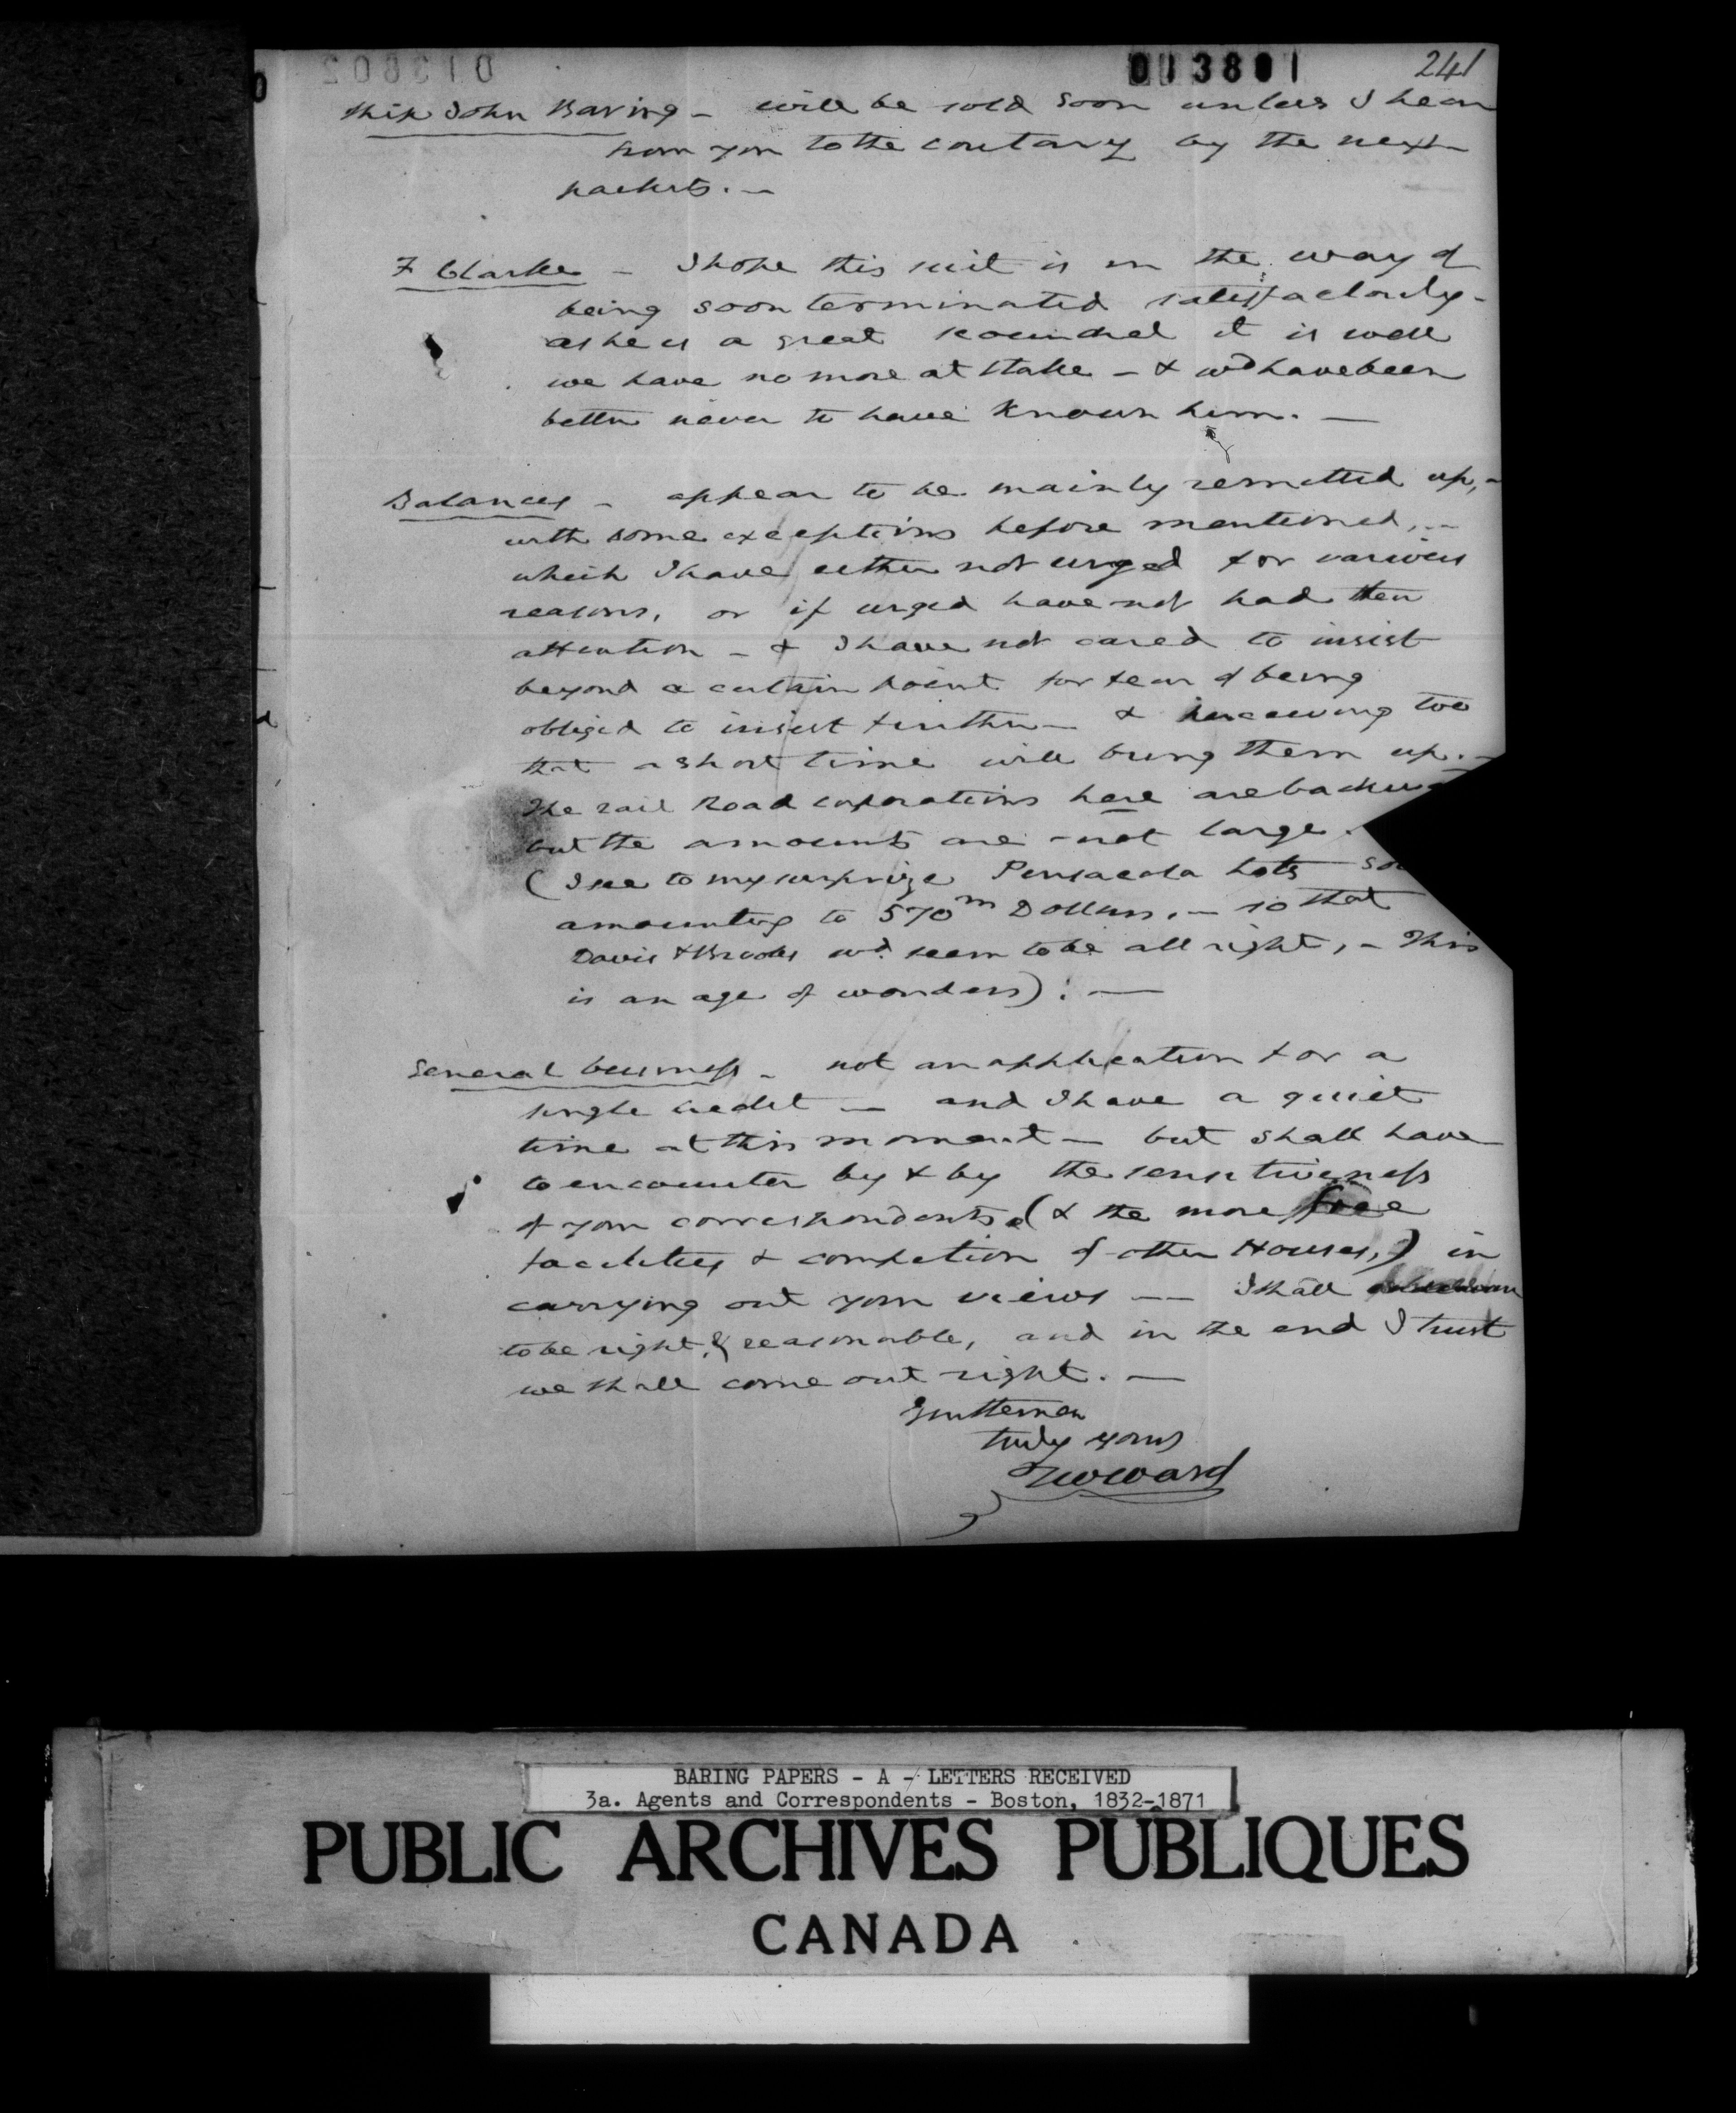 013802
013801
241
Ship John Baring - will be sold soon unless I hear
from you to the contrary by the next
packets. -
F Clarke - I hope this suit is in the way of
being soon terminated satisfactorily -
as he is a great scoundrel it is well
we have no more at stake - & wd have been
better never to have known him. -
Balances - appear to be mainly remitted up, -
with some exceptions before mentioned, -
which I have either not urged for various
reasons, or if urged have not had their
attention - & I have not cared to insist
beyond a certain point for fear of being
obliged to insist further - & perceiving too
that a short time will bring them up. -
The rail Road corporations here are
but the amounts are not large.
(I see to my surprize Pensacola lots
amounting to 570m Dollars. - so that
Davis & Brooks wd. seem to be all right, - This
is an age of wonders): -
General business - not an application for a
single credit - and I have a quiet
time at this moment - but shall have
to encounter by & by the sensitiveness
of your correspondents (& the more free
facilities & competion of other Houses,) in
carrying out your views - I shall
to be right & reasonable, and in the end I trust
we shall come out right. -
Gentlemen
truly yours
TWWard
BARING PAPERS - A - LETTERS RECEIVED
3a. Agents and Correspondents - Boston, 1832-1871
PUBLIC ARCHIVES PUBLIQUES
CANADA